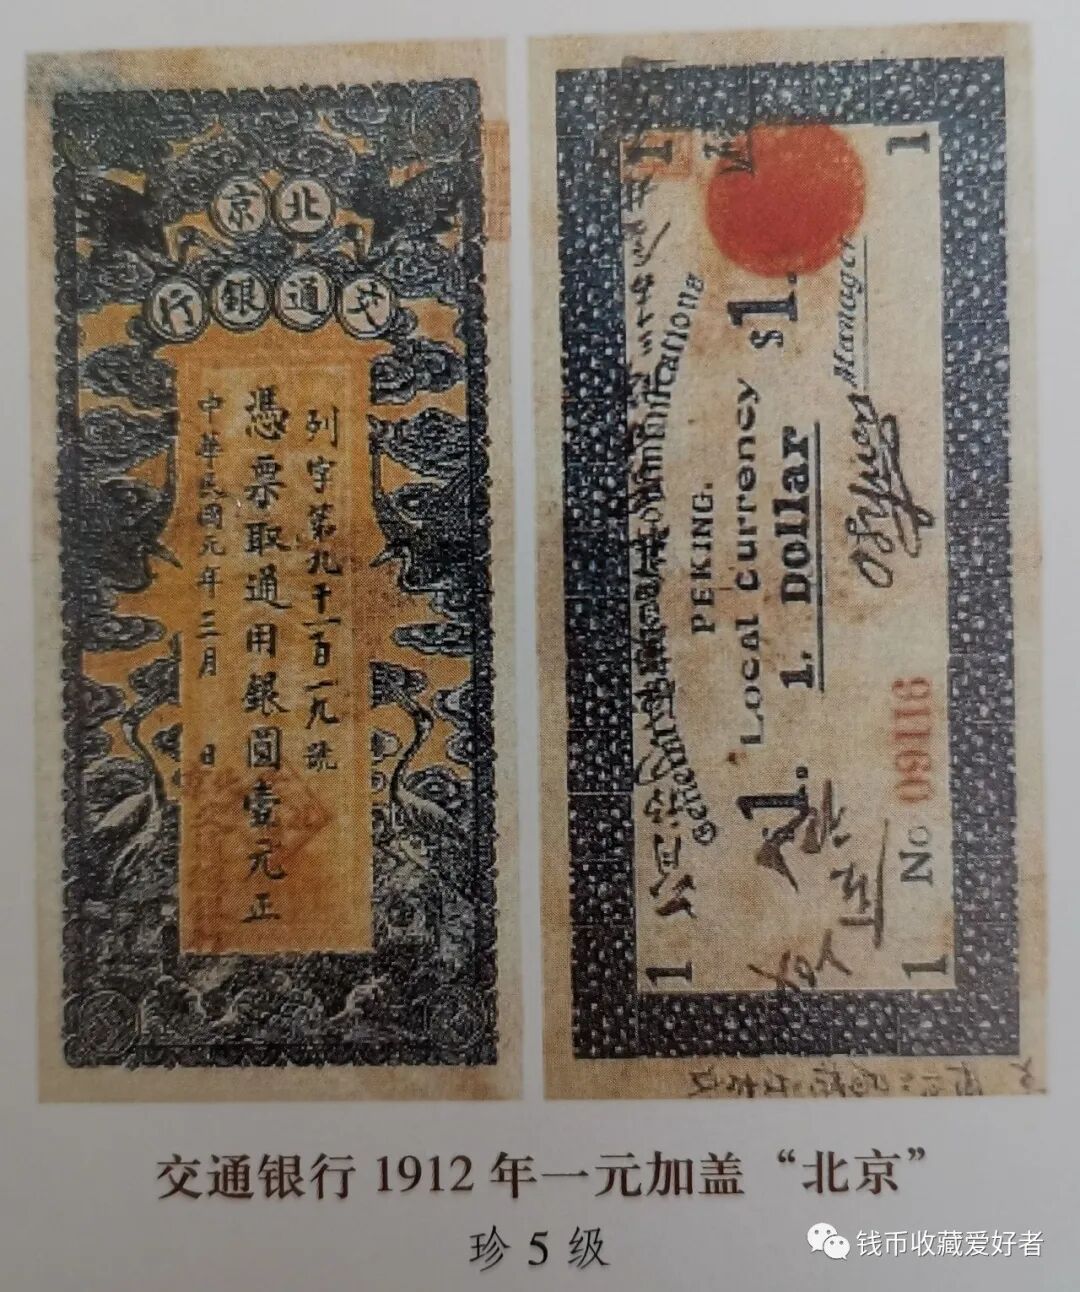 北京
交通銀行
列字第九千一百一九號
憑票取通用銀圓壹元正
中華民國元年三月 日
1 1
Communications
PEKING.
Local Currency $1.
1. Dollar
Manager
No 09116
1 1
交通银行 1912 年一元加盖“北京”
珍 5 级
钱币收藏爱好者